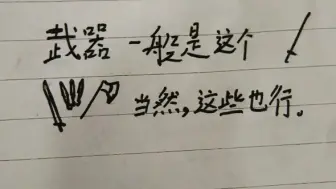 武器一般是这个
当然,这些也行。